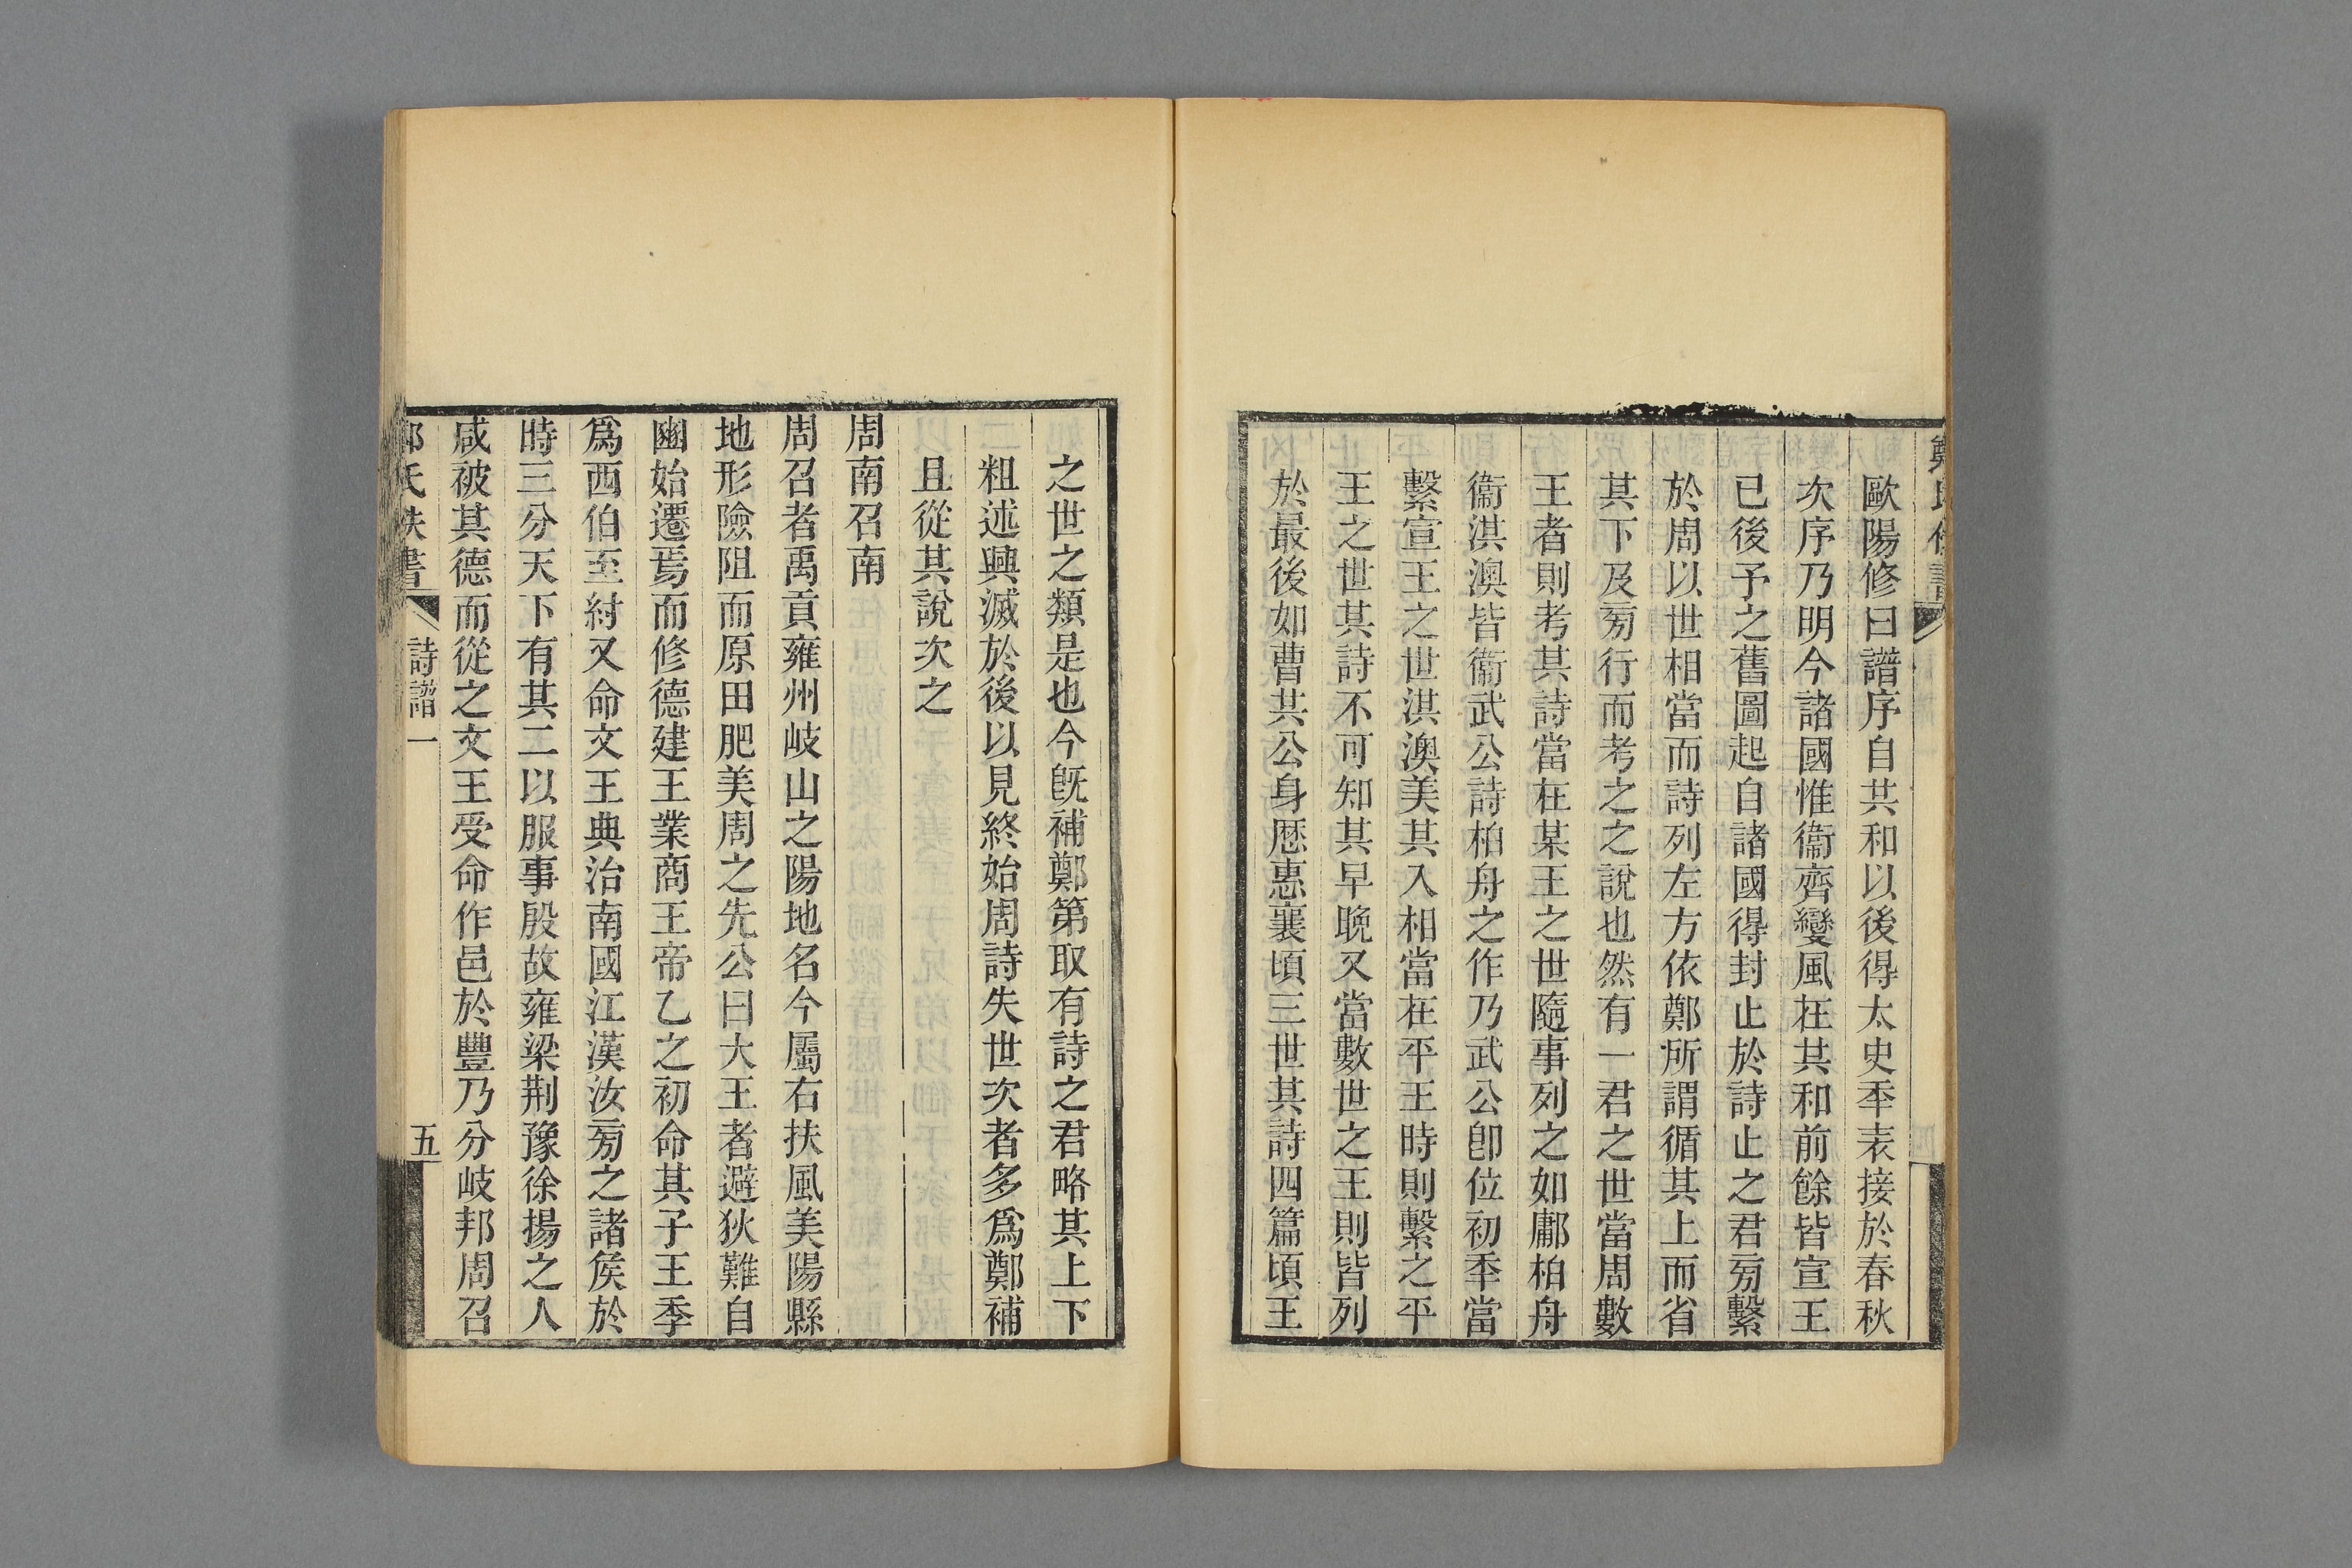 歐陽修曰譜序自共和以後得太史秊表接於春秋
次序乃明今諸國惟衞齊變風在共和前餘皆宣王
已後予之舊圖起自諸國得封止於詩止之君㫄繫
於周以世相當而詩列左方依鄭所謂循其上而省
其下及㫄行而考之之說也然有一君之世當周數
王者則考其詩當在某王之世隨事列之如鄘柏舟
衞淇澳皆衞武公詩柏舟之作乃武公卽位初秊當
繫宣王之世淇澳美其入相當在平王時則繫之平
王之世其詩不可知其早晚又當數世之王則皆列
於最後如曹共公身歷惠襄頃三世其詩四篇頃王
之世之類是也今旣補鄭第取有詩之君略其上下
粗述興滅於後以見終始周詩失世次者多爲鄭補
且從其說次之
周南召南
周召者禹貢雍州岐山之陽地名今屬右扶風美陽縣
地形險阻而原田肥美周之先公曰大王者避狄難自
豳始遷焉而修德建王業商王帝乙之初命其子王季
爲西伯至紂又命文王典治南國江漢汝㫄之諸侯於
時三分天下有其二以服事殷故雍梁荆豫徐揚之人
咸被其德而從之文王受命作邑於豐乃分岐邦周召
詩譜一
五